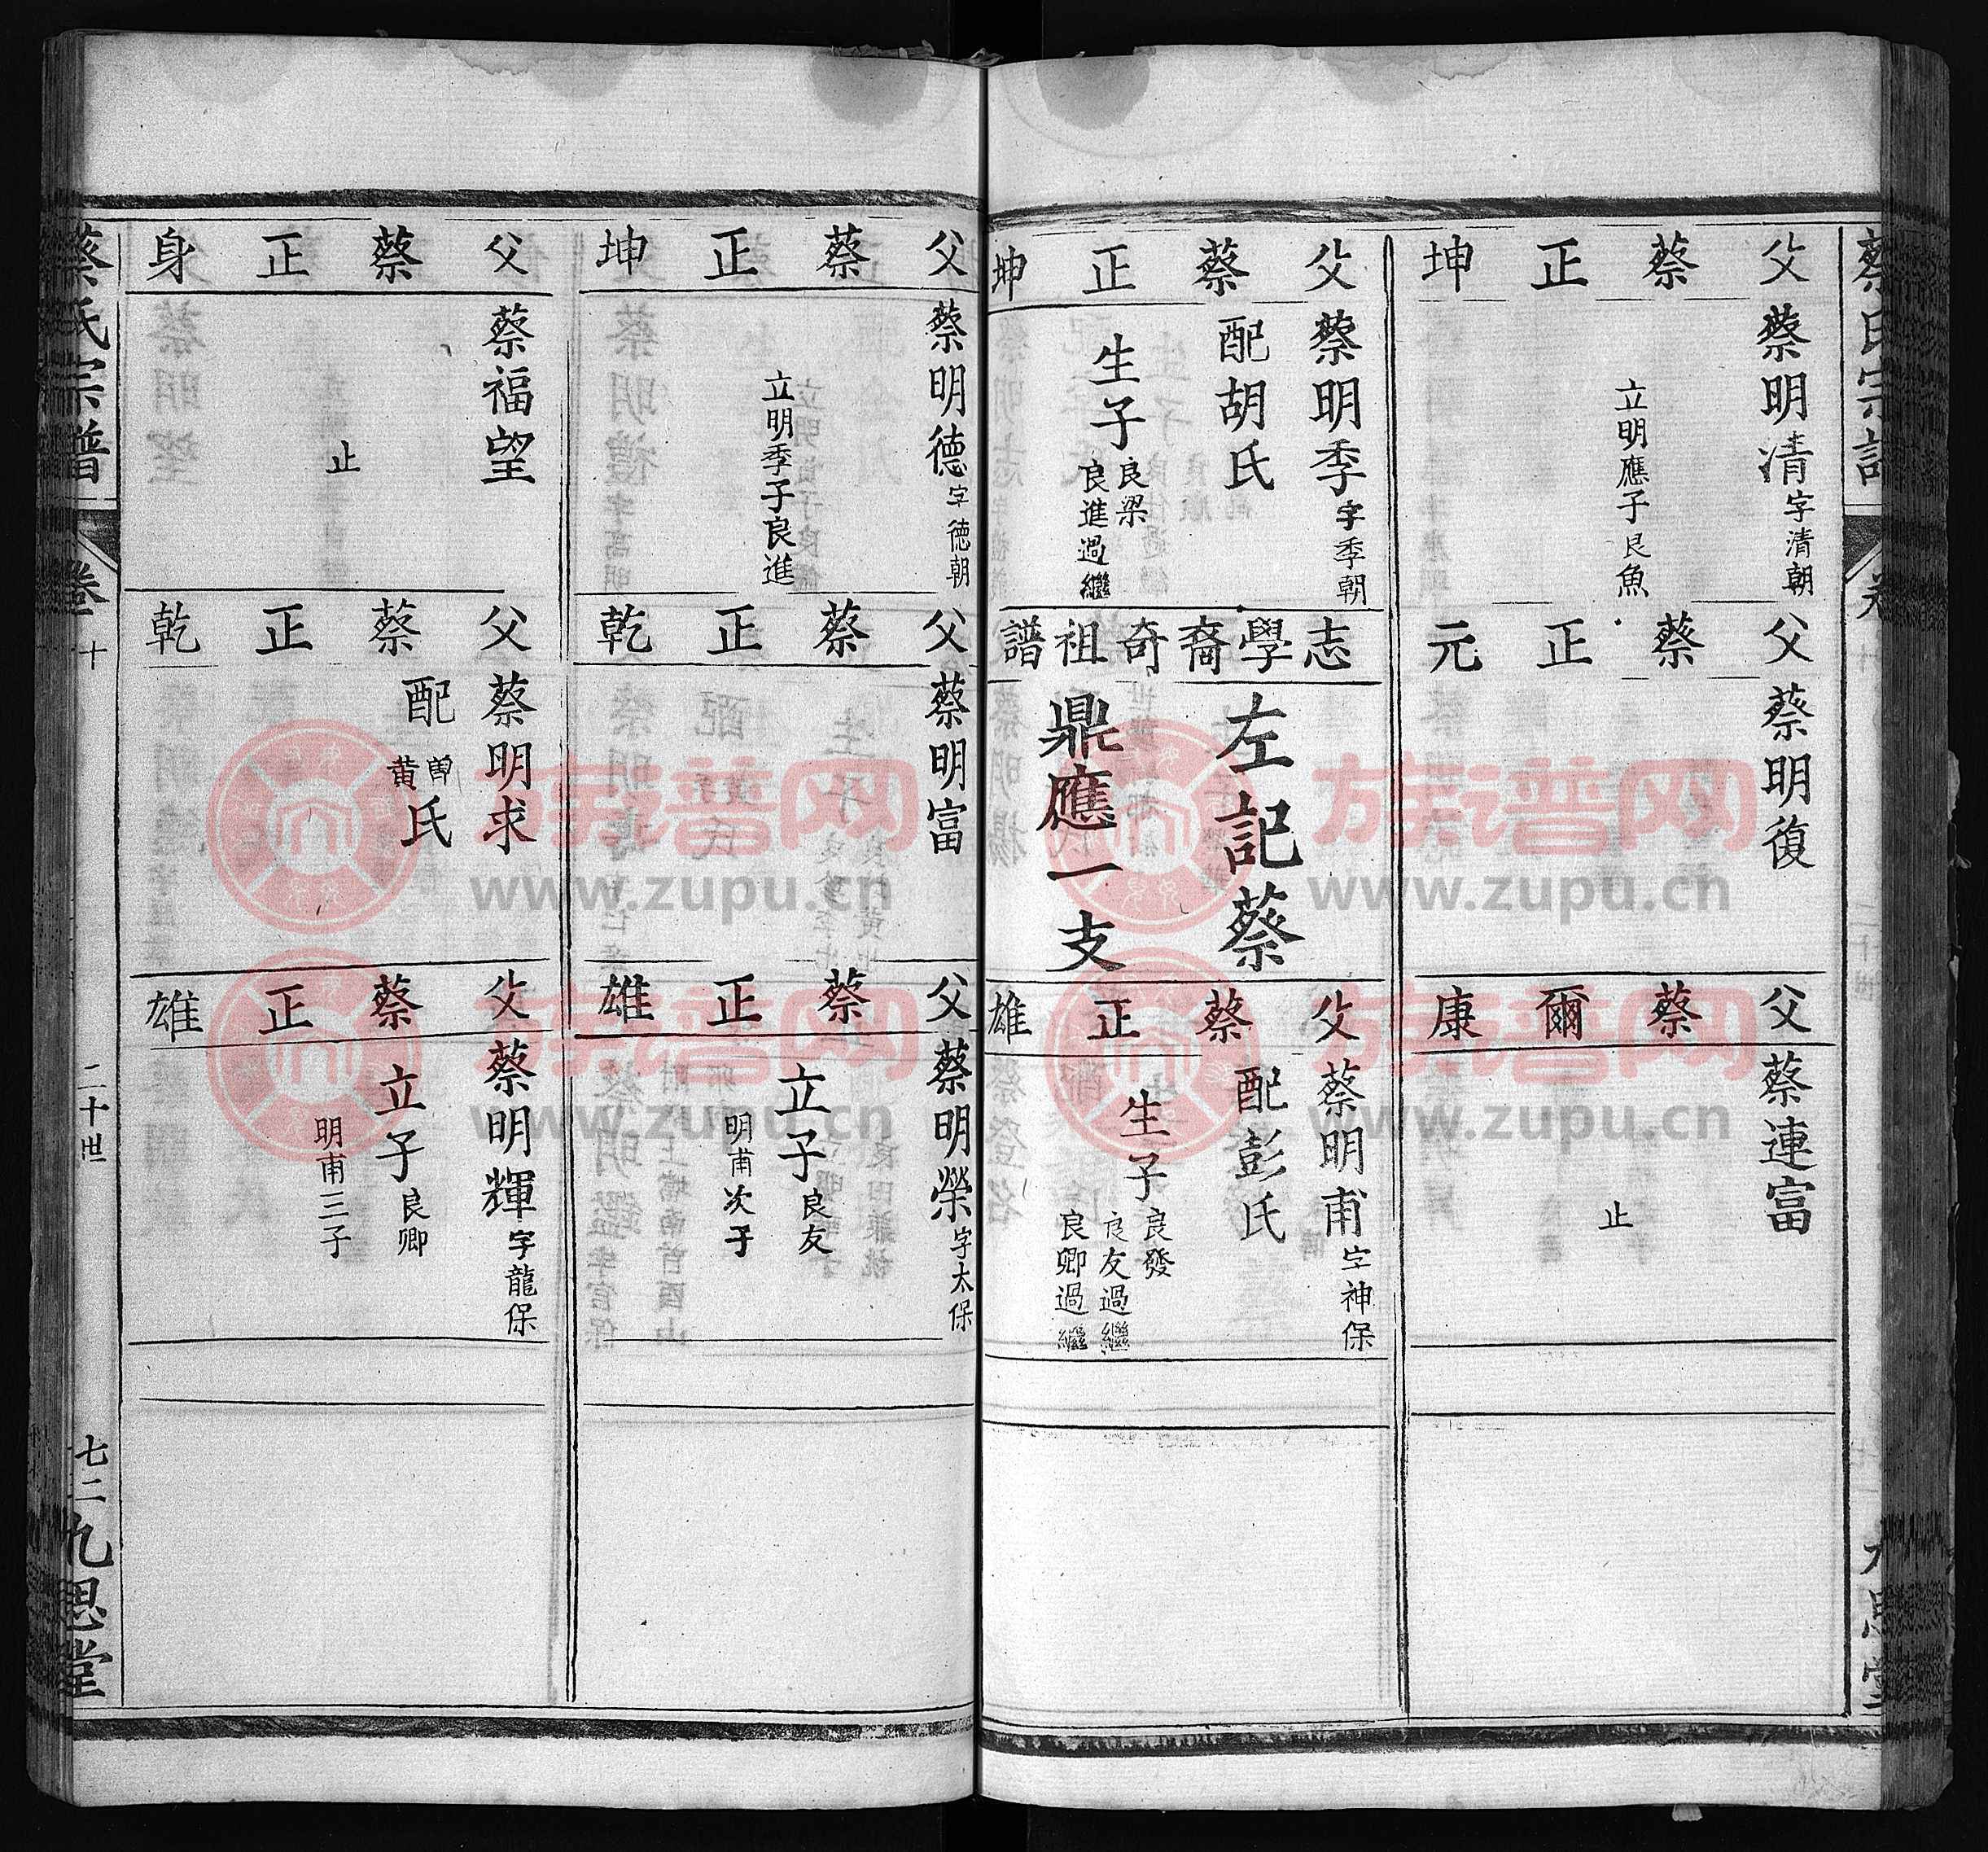 父蔡正坤
蔡明清字清朝
立明應子良魚
父蔡正元
蔡明復
父蔡爾康
蔡連富
止
父蔡正坤
蔡明季字季朝
配胡氏
生子
良梁
良進過繼
志學裔奇祖譜
左記蔡
鼎應一支
父蔡正雄
蔡明甫字神保
配彭氏
生子
良發
良友過繼
良卿過繼
父蔡正坤
蔡明德字德朝
立明季子良進
父蔡正乾
蔡明富
父蔡正雄
蔡明榮字太保
立子良友
明甫次子
父蔡正身
蔡福望
止
父蔡正乾
蔡明求
配曾黄氏
父蔡正雄
蔡明輝字龍保
立子良卿
明甫三子
蔡氏宗譜
卷十
二十世
七二
九思堂
族谱网
www.zupu.cn
族谱网
www.zupu.cn
族谱网
www.zupu.cn
族谱网
www.zupu.cn